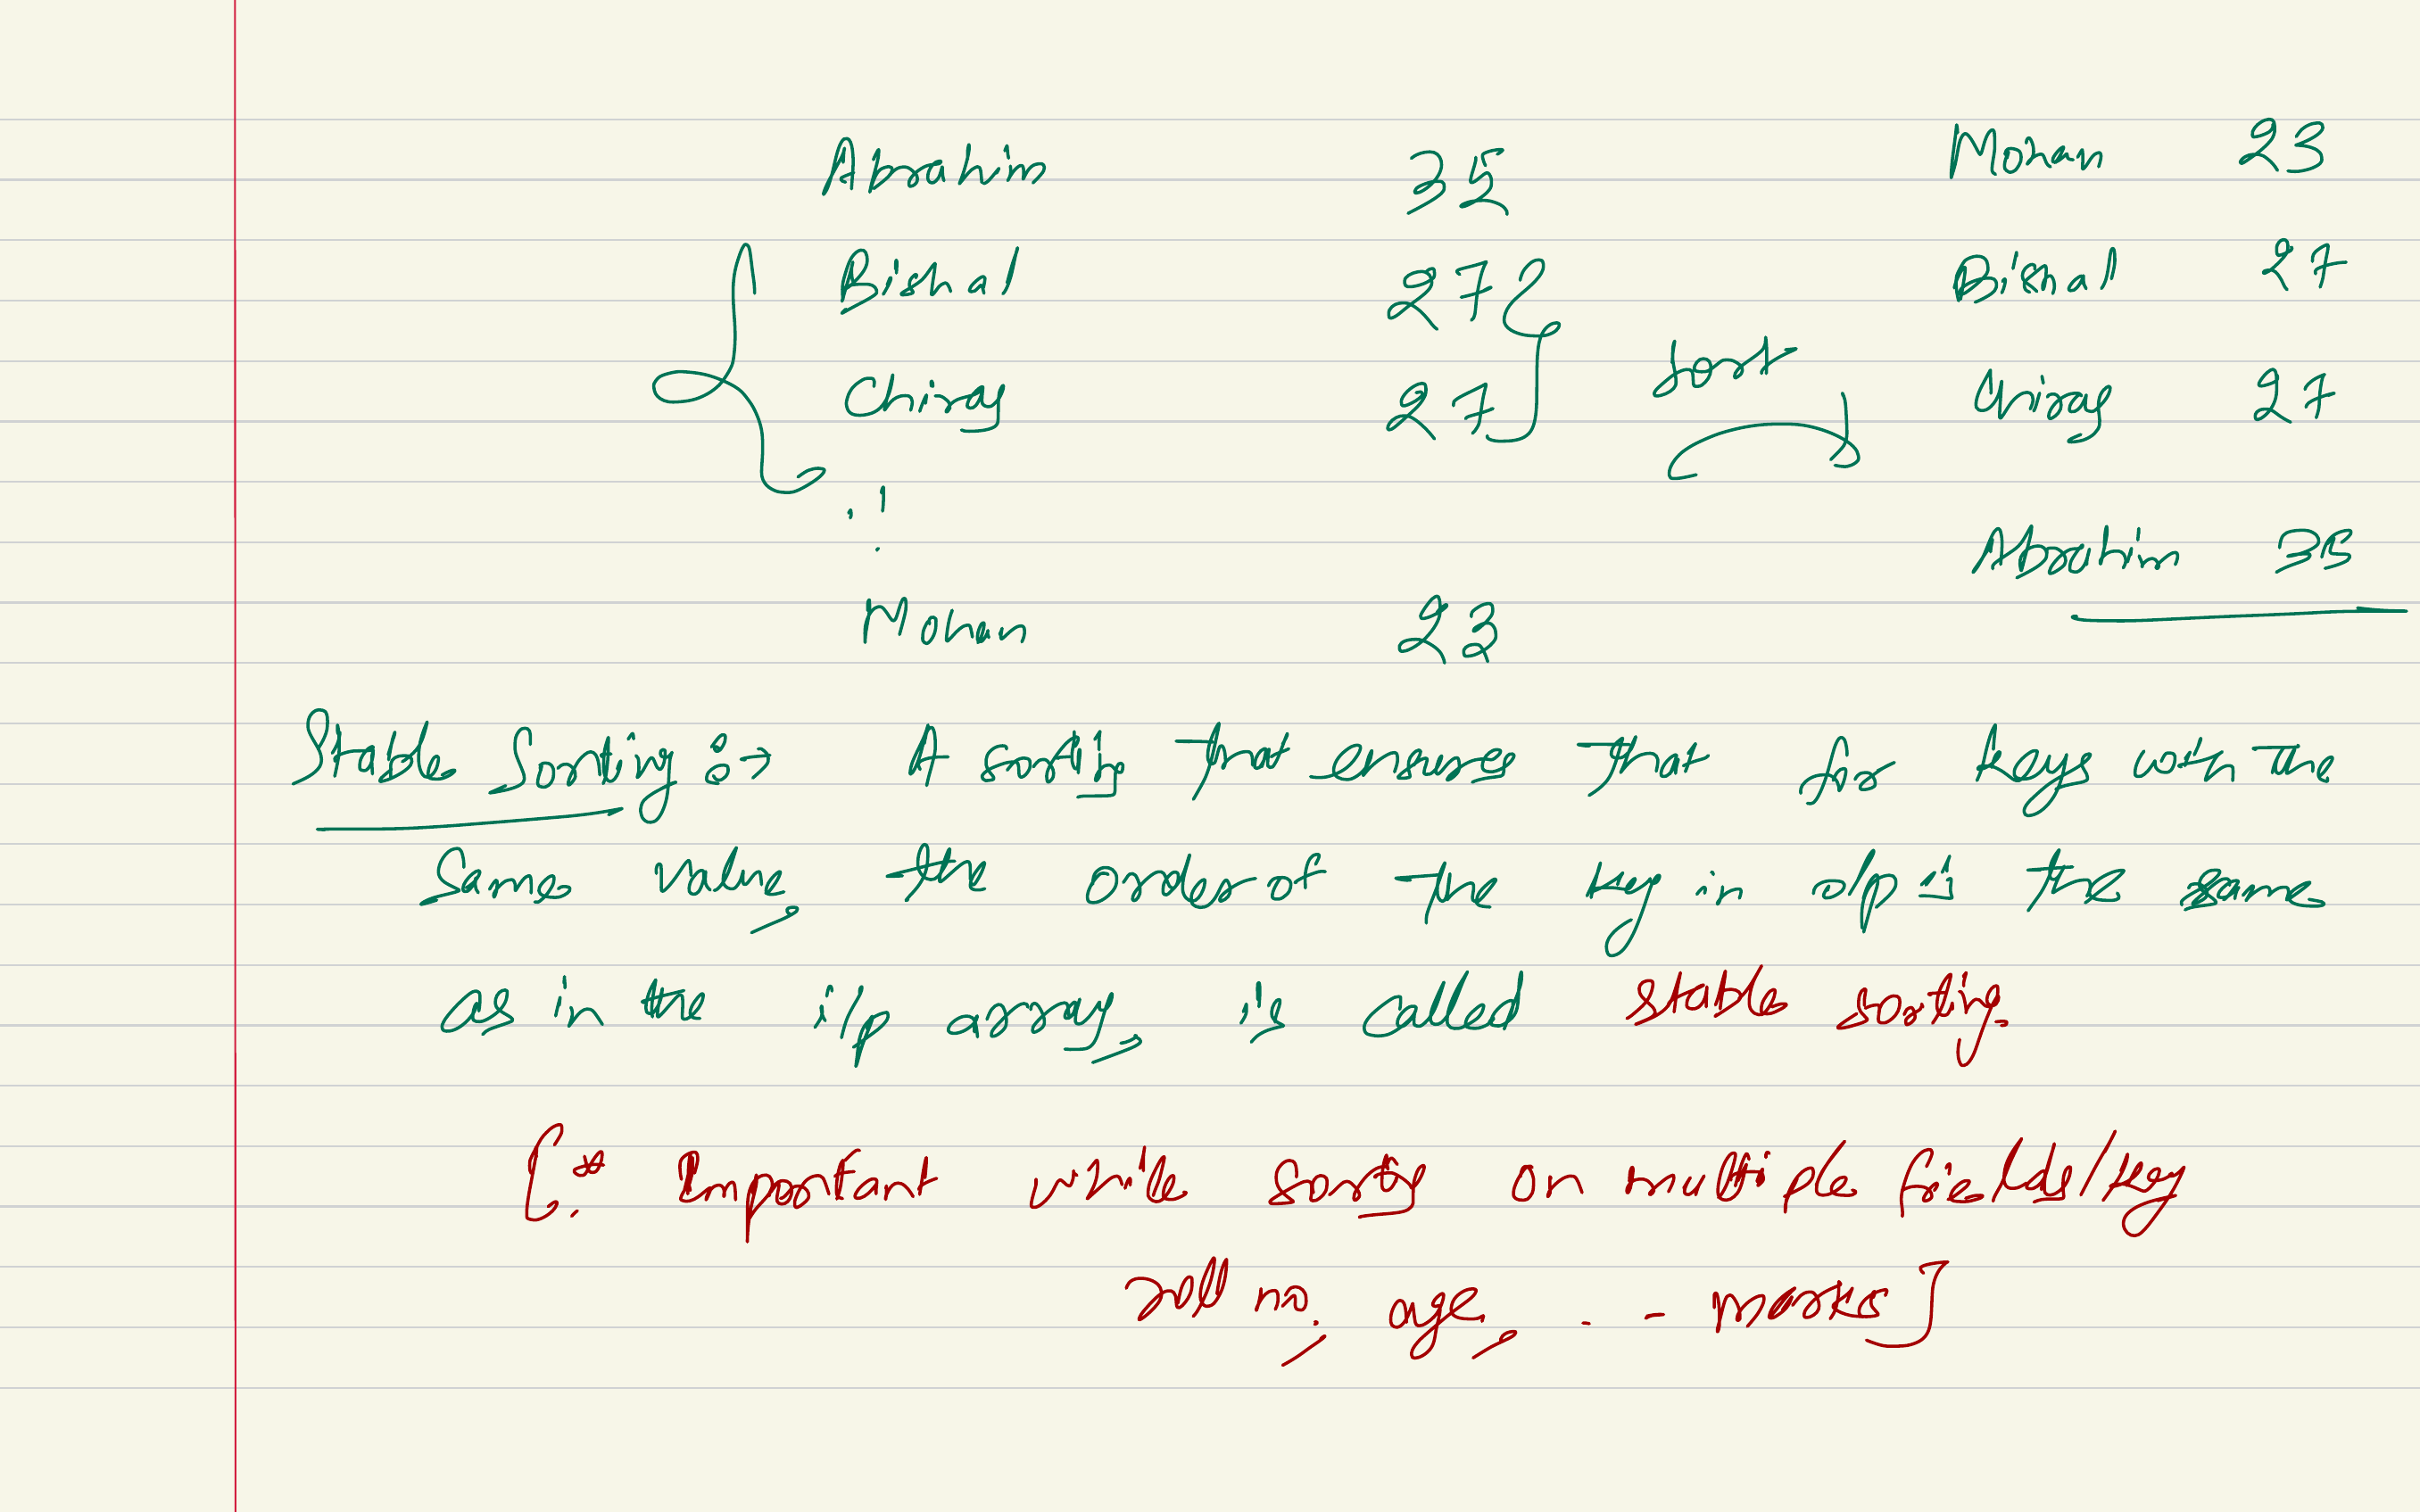 Abrahim 35 Mohan 23
Bishal 27 Bishal 27
Chirag 27 sort Chirag 27
Abrahim 35
Mohan 23
Stable Sorting :→ A sorting that ensures that for keys with the
same value, the order of the key in o/p is the same
as in the i/p array, is called stable sorting.
[* Important while sorting on multiple fields/key
roll no., age, . . - marks]